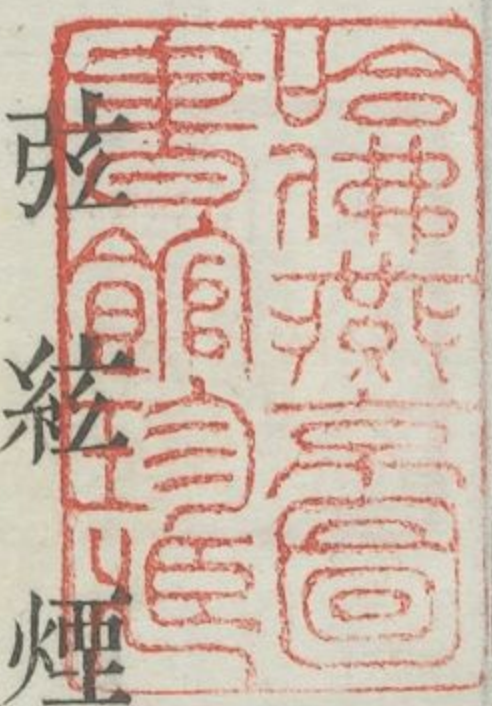 哈佛燕京圖
書館珍藏
弦絃煙